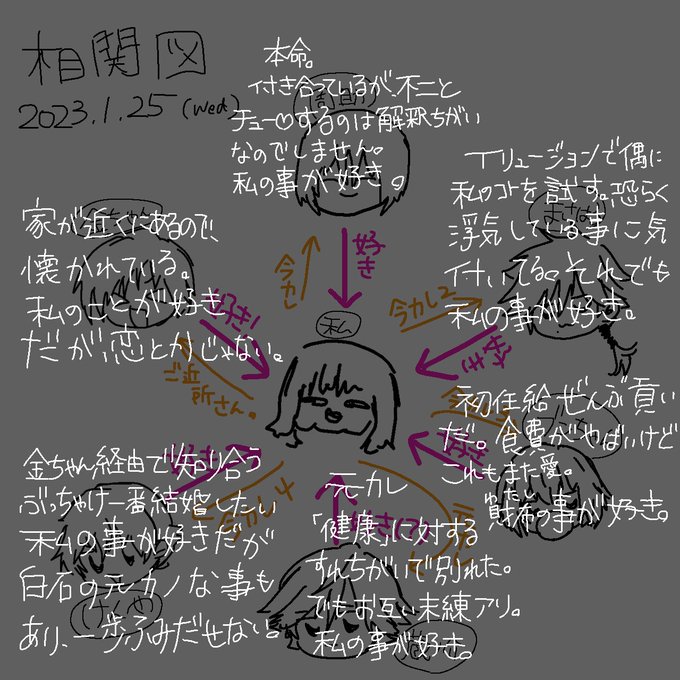 相関図
2023.1.25(wed)
本命。
付き合っているが、不二と
チュー♡するのは解釈ちがい
なのでしません。
私の事が好き。
イリュージョンで偶に
私のコトを試す。恐らく
浮気している事に気
付いてる。それでも
私の事が好き。
家が近くにあるので、
懐かれている。
私のことが好き
だが恋とかじゃない。
今カレ
好き
今カレ2
好き
好き!
ご近所さん。
私
初任給ぜんぶ貢い
だ。食費がやばいけど
これもまた愛。
私と財布の事が好き。
好き
金ちゃん経由で知り合う
ぶっちゃけ一番結婚したい
私の事が好きだが
白石の元カノな事も
あり、一歩ふみだせない。
好き
今カレ4
けんや
元カレ
「健康」に対する
すれちがいで別れた。
でもお互い未練アリ。
私の事が好き。